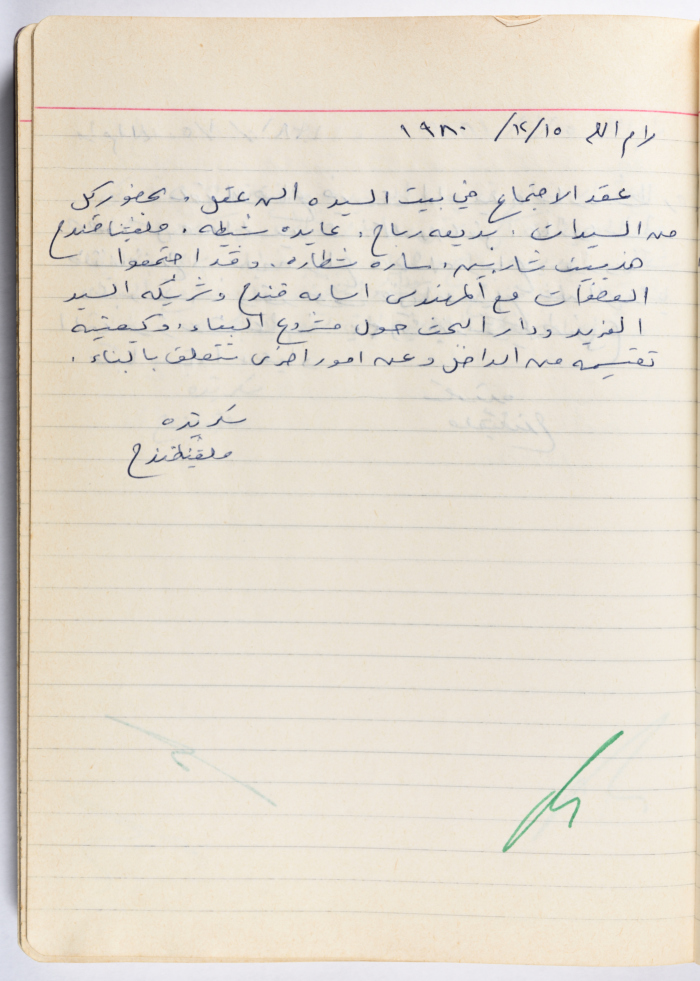 رام الله ١٥/١٢/ ١٩٨٠
عقد الاجتماع في بيت السيده السن عقل وبحضور كل
من السيدات، بديعه رباح، عايده شطيه، ملفينا قندح
شاربين، سارة شطاره. وقد اجتمعوا
العضوات مع المهندس اسامه قندح وشريكه السيد
الفريد ودار البحث حول مشروع البناء، وكيفية
تقسيمه من الداخل وعن امور اخرى تتعلق بالبناء.
سكرتيره
ملفينا قندح